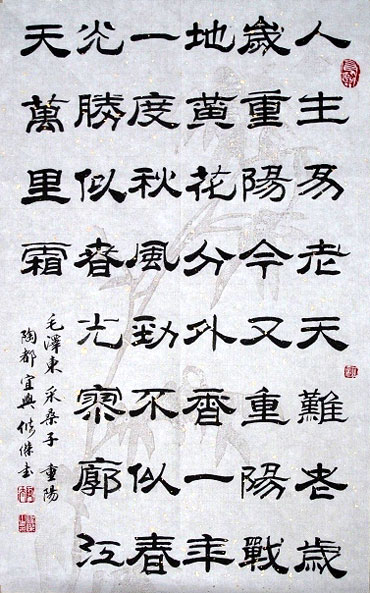 人生易老天難老歲
歲重陽今又重陽戰
地黃花分外香一年
一度秋風勁不似春
光勝似春光寥廓江
天萬里霜
毛澤東 采桑子 重陽
陶都宜興 书